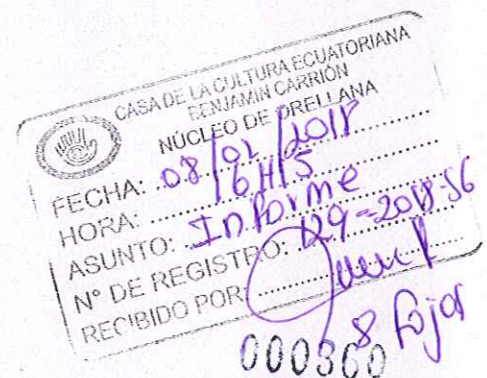 CASA DE LA CULTURA ECUATORIANA
BENJAMIN CARRIÓN
NÚCLEO DE ORELLANA
FECHA: 08/02/2018
HORA: 16H15
ASUNTO: Informe
N° DE REGISTRO: 129-2018-SG
RECIBIDO POR:
000360
8 fojas